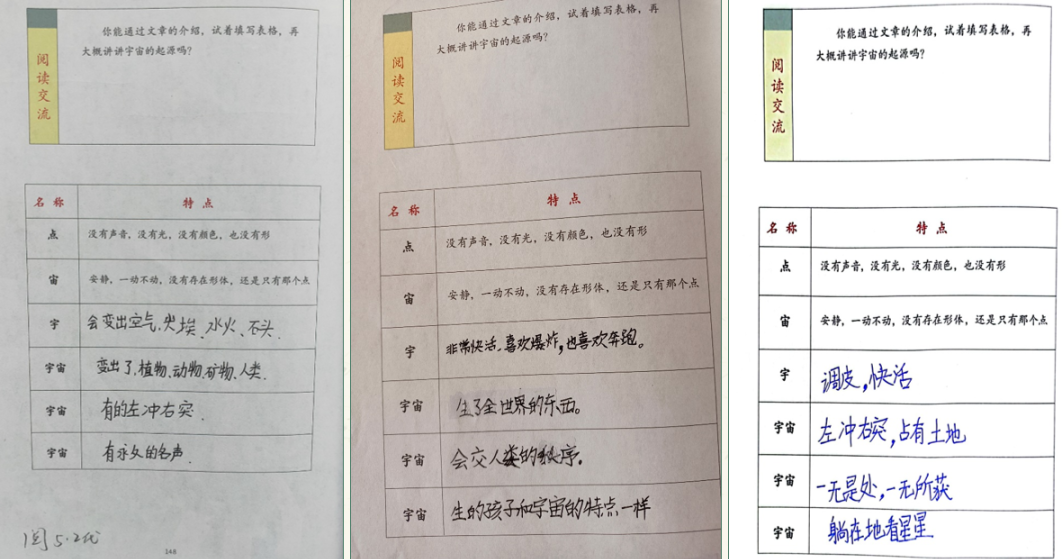 你能通过文章的介绍，试着填写表格，再
大概讲讲宇宙的起源吗？
阅读交流
名称 特点
点 没有声音，没有光，没有颜色，也没有形
宙 安静，一动不动，没有存在形体，还是只有那个点
宇 会变出空气、火、埃、水火、石头.
宇宙 变出了、植物、动物、矿物、人类.
宇宙 有的左冲右突.
宇宙 有永久的名声.
阅 5.2
148
你能通过文章的介绍，试着填写表格，再
大概讲讲宇宙的起源吗？
阅读交流
名称 特点
点 没有声音，没有光，没有颜色，也没有形
宙 安静，一动不动，没有存在形体，还是只有那个点
宇 非常快活，喜欢爆炸，也喜欢奔跑。
宇宙 生了全世界的东西。
宇宙 会交人类的秩序。
宇宙 生的孩子和宇宙的特点一样
你能通过文章的介绍，试着填写表格，再
大概讲讲宇宙的起源吗？
阅读交流
名称 特点
点 没有声音，没有光，没有颜色，也没有形
宙 安静，一动不动，没有存在形体，还是只有那个点
宇 调皮，快活
宇宙 左冲右突，占有土地
宇宙 一无是处，一无所获
宇宙 躺在地看星星